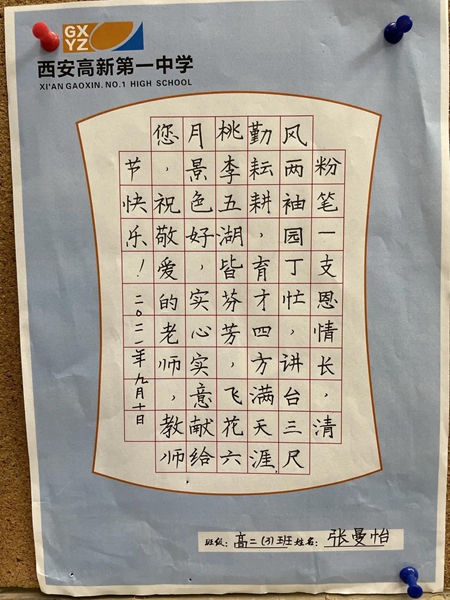 GX
YZ
西安高新第一中学
XI'AN GAOXIN. NO.1 HIGH SCHOOL
粉笔一支恩情长，清
风两袖园丁忙，讲台三尺
勤耘耕，育才四方满天涯.
桃李五湖皆芬芳，飞花六
月景色好，实心实意献给
您，祝敬爱的老师，教师
节快乐！二〇二一年九月十日
班级：高二(3)班 姓名：张曼怡